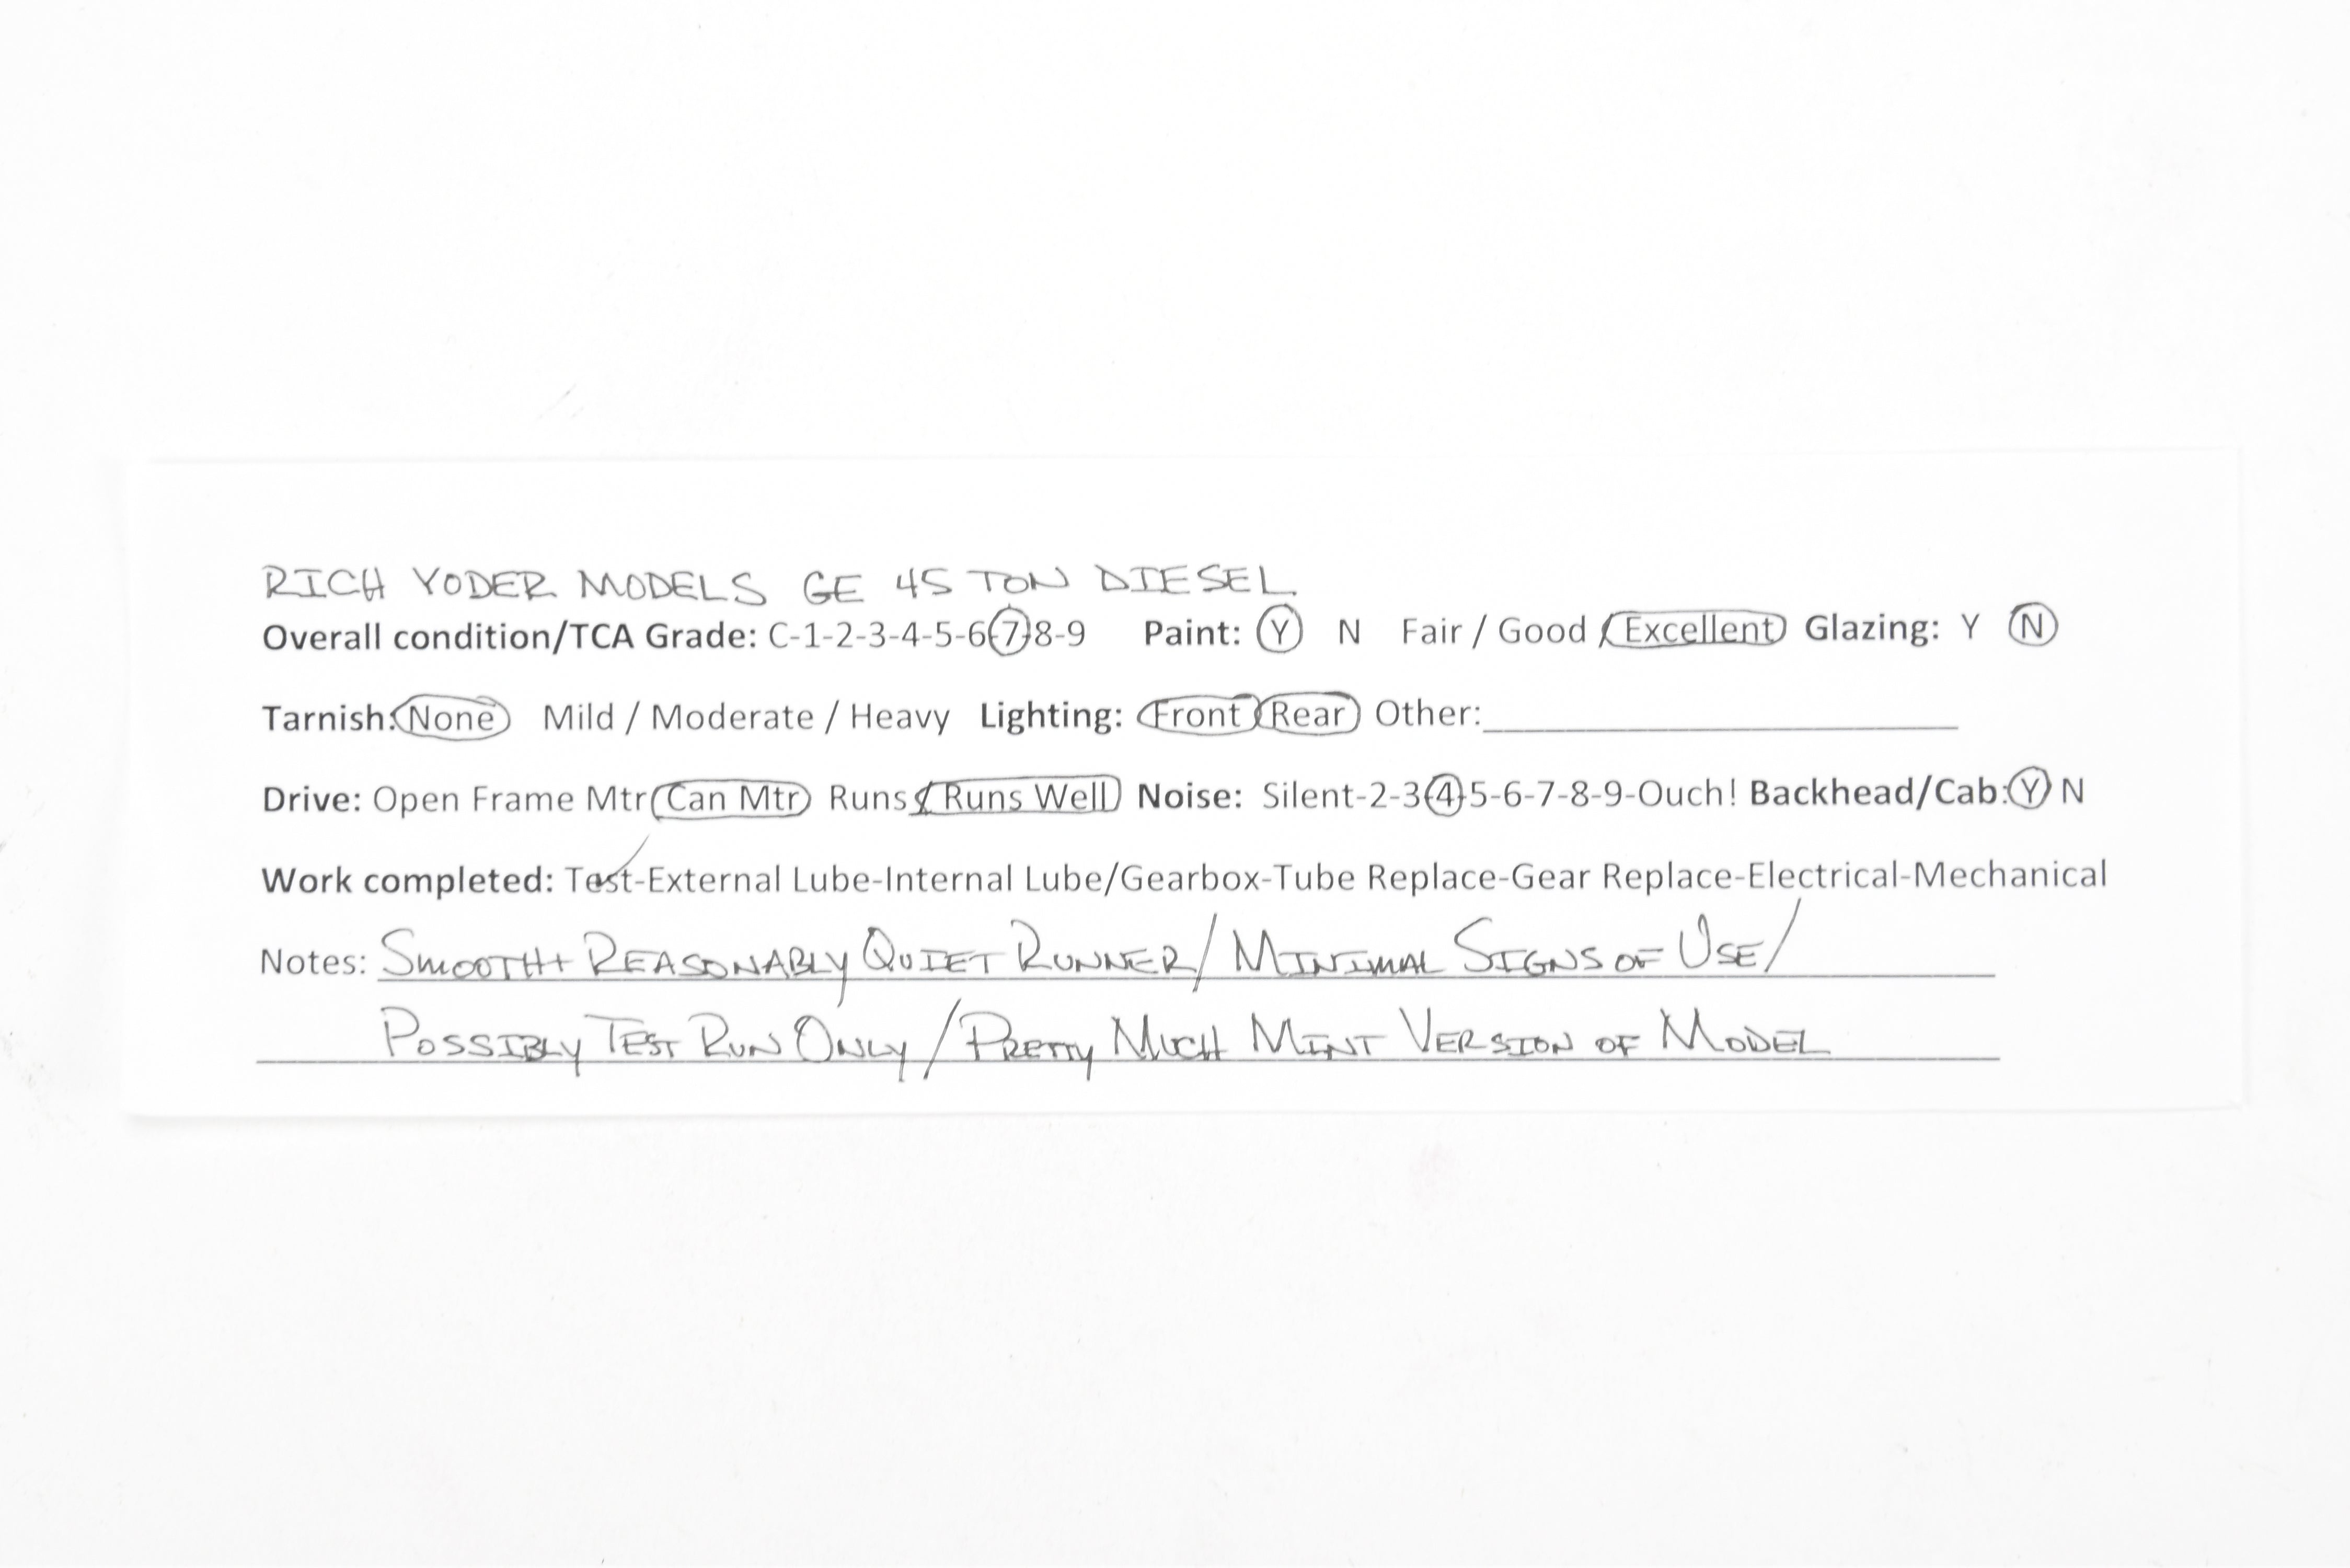 RICH YODER MODELS GE 45 TON DIESEL
Overall condition/TCA Grade: C-1-2-3-4-5-6-7-8-9 Paint: Y N Fair / Good / Excellent Glazing: Y N
Tarnish: None Mild / Moderate / Heavy Lighting: Front Rear Other:
Drive: Open Frame Mtr Can Mtr Runs / Runs Well Noise: Silent-2-3-4-5-6-7-8-9-Ouch! Backhead/Cab: Y N
Work completed: Test-External Lube-Internal Lube/Gearbox-Tube Replace-Gear Replace-Electrical-Mechanical
Notes: SMOOTH + REASONABLY QUIET RUNNER / MINIMAL SIGNS OF USE /
POSSIBLY TEST RUN ONLY / PRETTY MUCH MINT VERSION OF MODEL